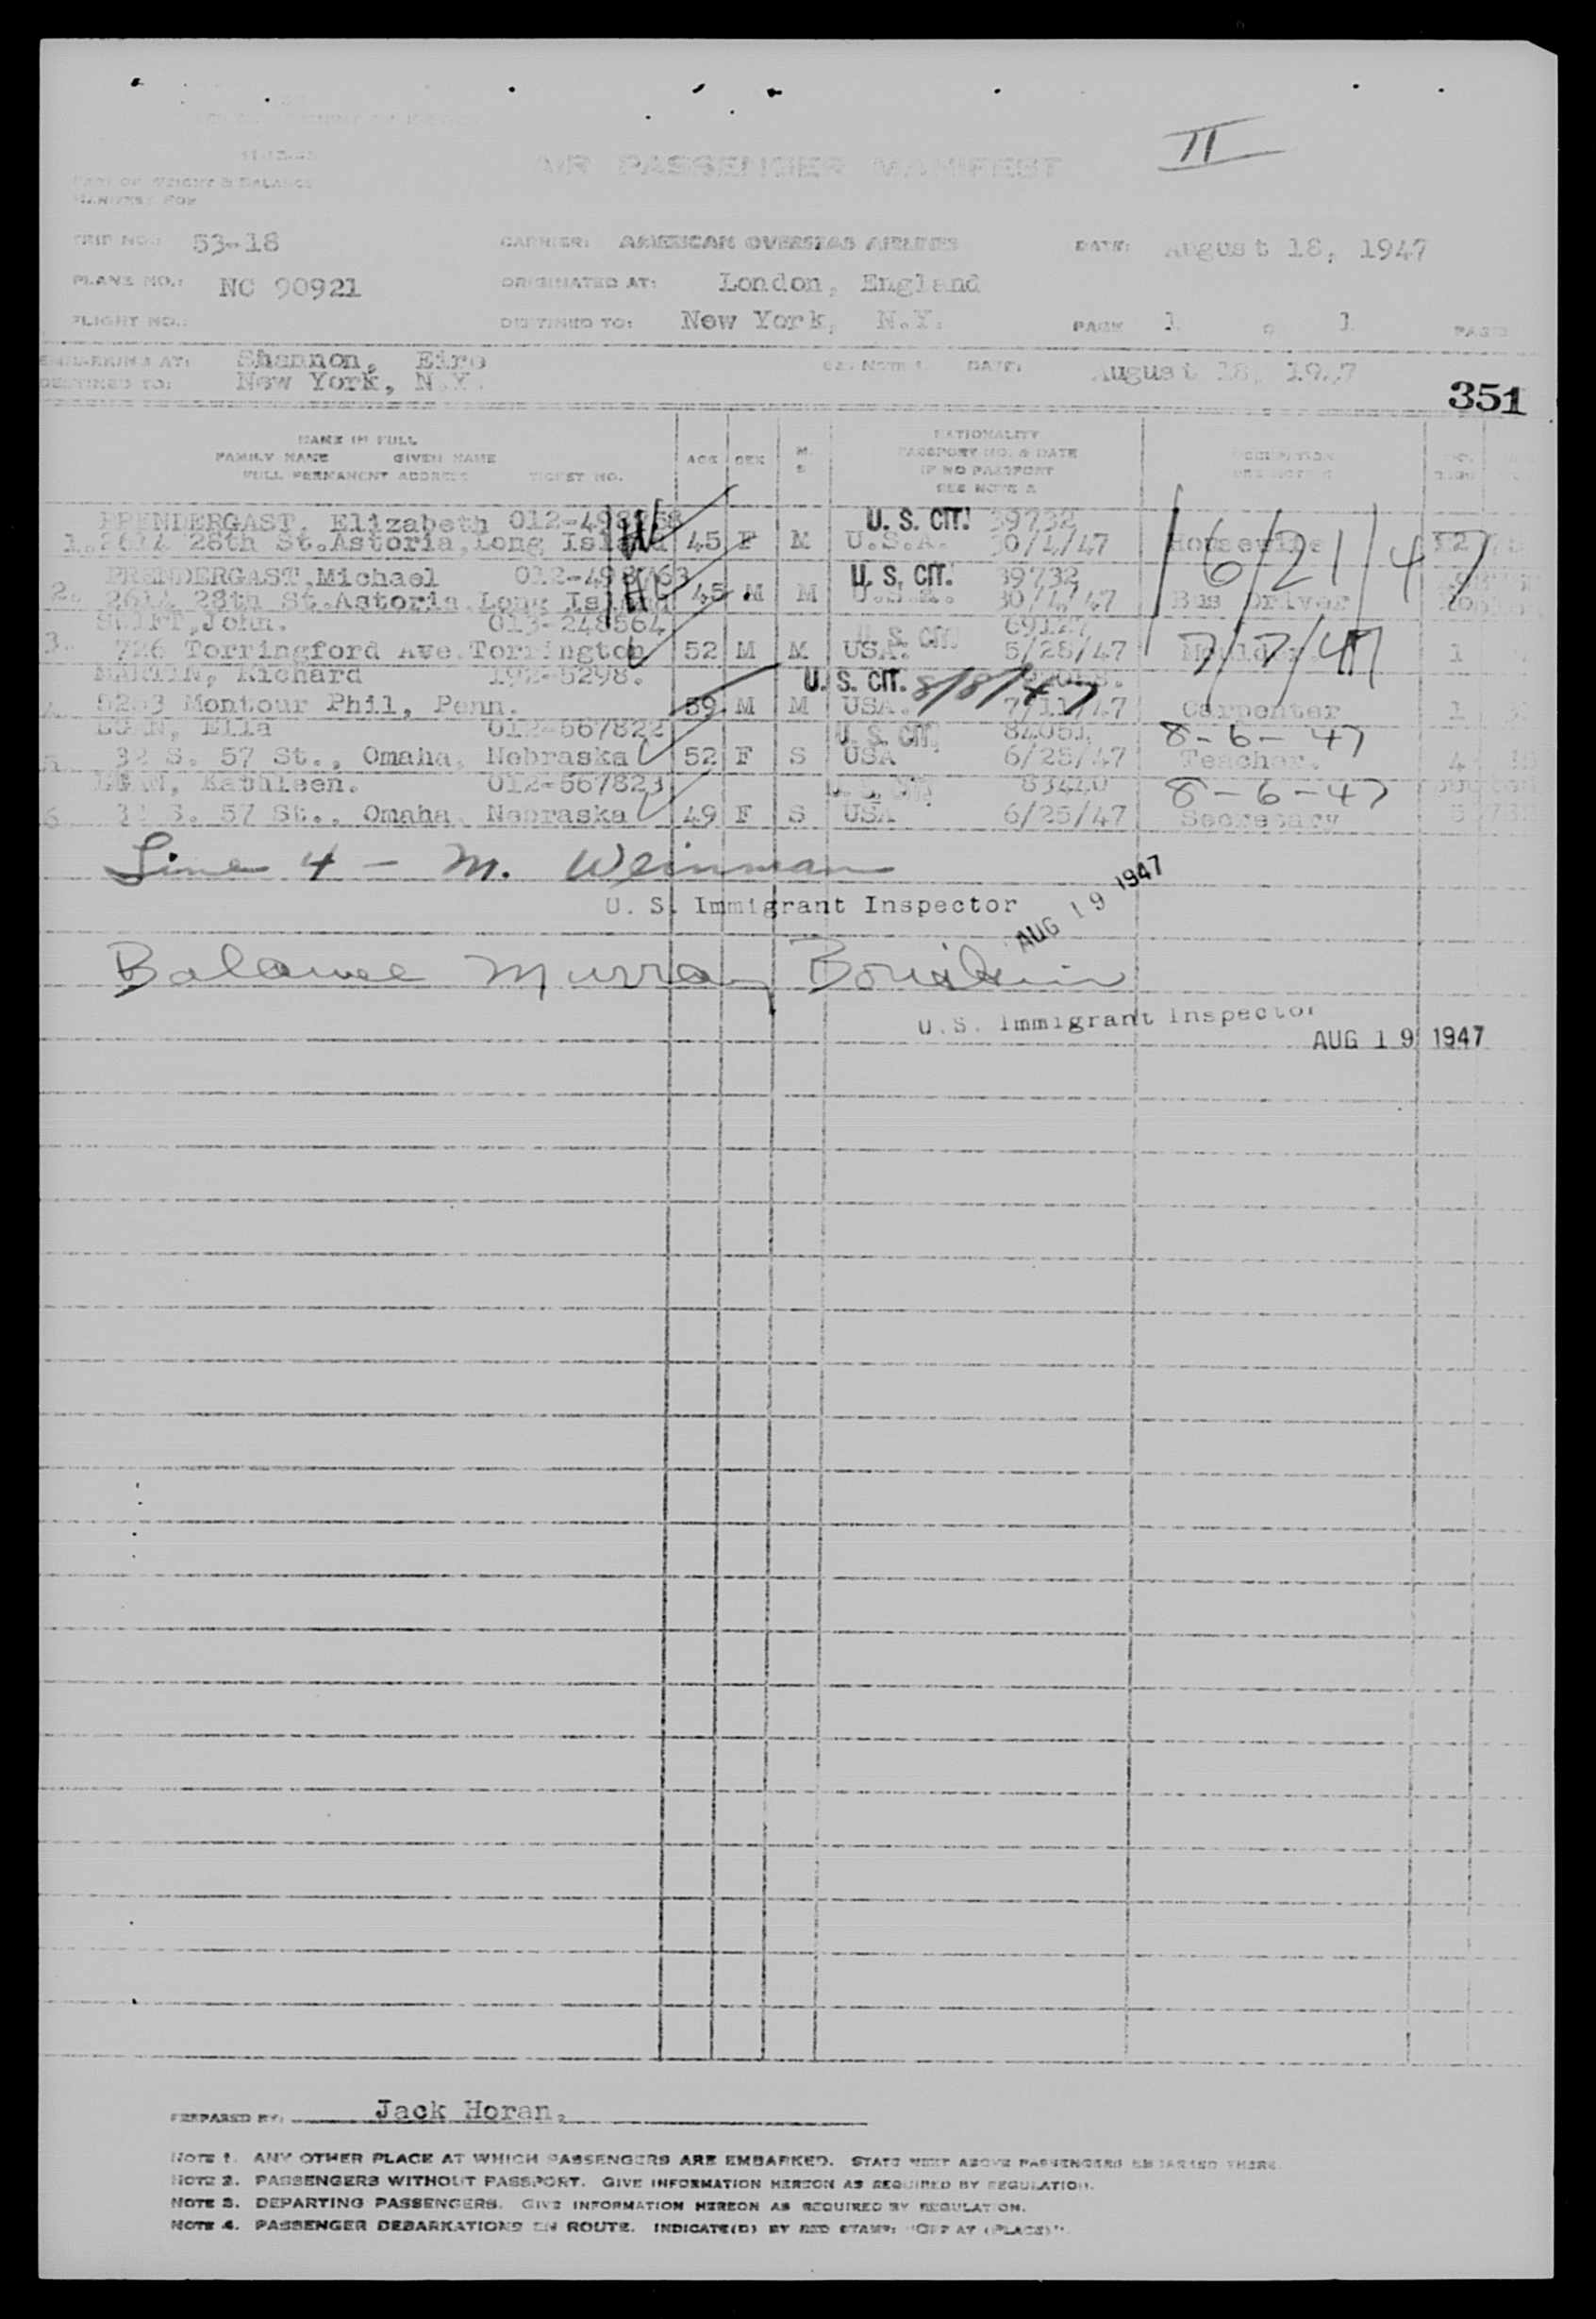 II
AIR PASSENGER MANIFEST
PART OF WEIGHT & BALANCE
MANIFEST FOR
TRIP NO.: 53-18 CARRIER: AMERICAN OVERSEAS AIRLINES DATE: August 18, 1947
PLANE NO.: NC 90921 ORIGINATED AT: London, England
FLIGHT NO.: DESTINED TO: New York, N.Y. PAGE 1 OF 1 PAGES
EMBARKING AT: Shannon, Eire SEE NOTE 1. DATE: August 18, 1947
DESTINED TO: New York, N.Y.
351
NAME IN FULL
FAMILY NAME GIVEN NAME
FULL PERMANENT ADDRESS TICKET NO.
AGE SEX M. S
NATIONALITY
PASSPORT NO. & DATE
IF NO PASSPORT
SEE NOTE 2
OCCUPATION
SEE NOTE 3
PRENDERGAST, Elizabeth U. S. CIT. 39732
1. 2614 28th St.Astoria, Long Island 45 F M U.S.A. 30/4/47 Housewife 6/21/47
PRENDERGAST, Michael U. S. CIT. 39732
2. 2614 28th St.Astoria, Long Island 45 M M U.S.A. 30/4/47 Bus Driver
John. 013-248564 U. S. CIT.
3. 726 Torringford Ave. Torrington 52 M M USA. 5/28/47 7/7/47 1
MARTIN, Richard U. S. CIT. 8/8/47
Montour Phil, Penn. 59 M M USA. 7/11/47 Carpenter 1
Ella 012-567822 U. S. CIT. 84051
32 S. 57 St., Omaha, Nebraska 52 F S USA 6/25/47 Teacher. 8-6-47 4
Kathleen. 012-567823 U. S. CIT. 83440
6. S. 57 St., Omaha, Nebraska 49 F S USA 6/25/47 Secretary 8-6-47
Line 4 - M. Weinman
U. S. Immigrant Inspector
AUG 19 1947
Balance Murray
U.S. Immigrant Inspector
AUG 19 1947
PREPARED BY: Jack Horan.
NOTE 1. ANY OTHER PLACE AT WHICH PASSENGERS ARE EMBARKED. STATE NEXT ABOVE PASSENGERS EMBARKED THERE.
NOTE 2. PASSENGERS WITHOUT PASSPORT. GIVE INFORMATION HEREON AS REQUIRED BY REGULATION.
NOTE 3. DEPARTING PASSENGERS. GIVE INFORMATION HEREON AS REQUIRED BY REGULATION.
NOTE 4. PASSENGER DEBARKATIONS EN ROUTE. INDICATE(D) BY RED STAMP: "OFF AT (PLACE)".